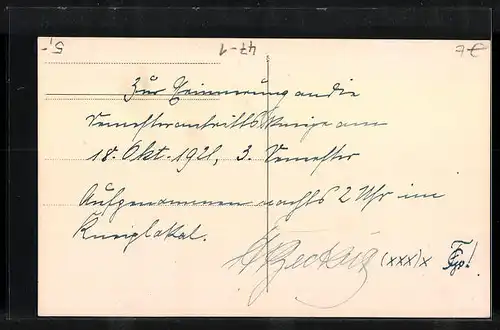 5,- 47-1 7€
Zur Erinnerung an die
Semesterantrittskneipe am
18. Okt. 1921, 3. Semester
Aufgenommen nachts 2 Uhr im
Kneiplokal.
(xxx)x